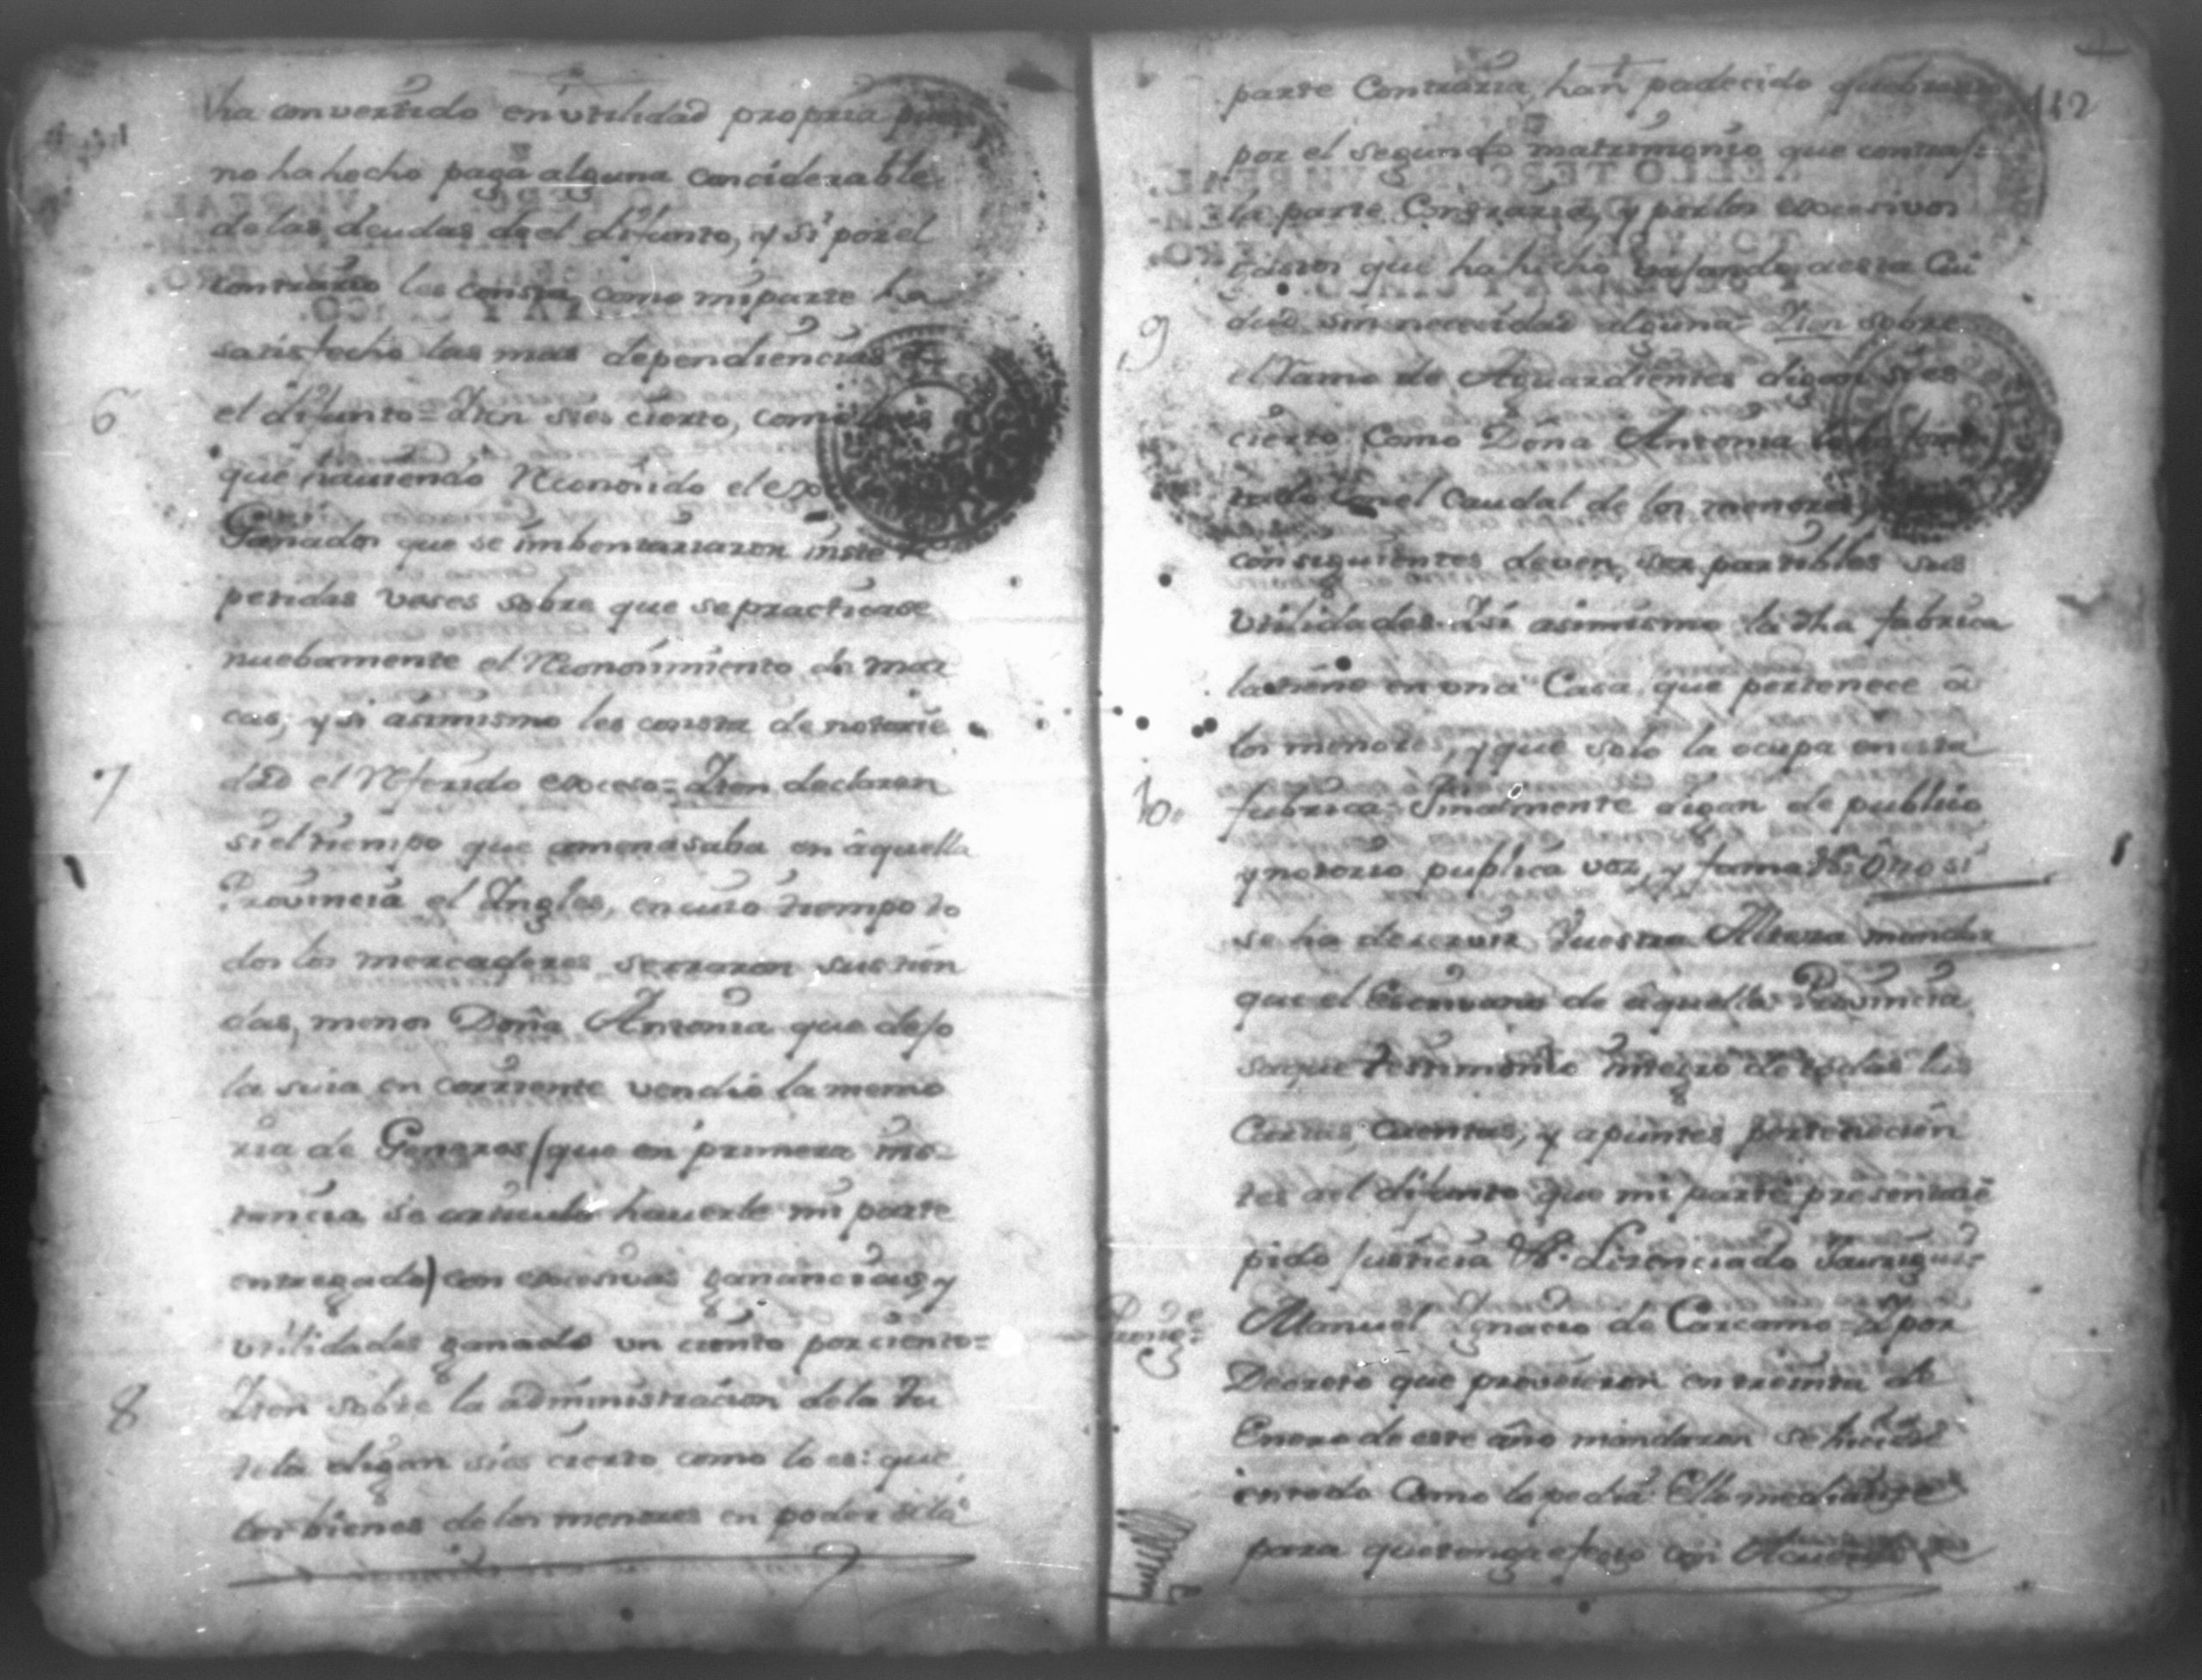 ha convertido en vtilidad propria pues
no ha hecho paga alguna conciderable
de las deudas de el difunto, y si por el
contrario les consta, como mi parte ha
satisfecho las mas dependiencias de
el difunto = Iten si es cierto, como lo es
que haviendo reconosido el
Ganados que se imbentariaron inste re
petidas veses sobre que se practicase
nuebamente el reconosimiento de mar
cas, y si asimismo les consta de notorie
dad el referido exceso = Iten declaren
si el tiempo que amenasaba en aquella
Provincia el Ingles, en cuio tiempo to
dos los mercaderes serraron sus tien
das, menos Doña Antonia que dejo
la suia en corriente vendio la memo
ria de Generos (que en primera ins-
tancia se articulo haverle mi parte
entregado) con excesivas ganancias, y
vtilidades ganado un ciento por ciento =
Iten sobre la administracion de la tu
tela digan si es cierto como lo es: que
los bienes de los menores en poder de la
6
7
8
112
parte Contraria, han padecido quebranto
por el segundo matrimonio que contrajo
la parte Contraria, y por los excesivos
que ha hecho bajando a esta Ciu
dad sin necesidad alguna = Iten sobre
el ramo de Aguardientes digan si es
cierto Como Doña Antonia lo ha
con el Caudal de los menores
consiguientes deven ser partibles sus
vtilidades. Y si asimismo la dha fabrica
la tiene en vna Casa que pertenece a
los menores, y que solo la ocupa en esta
fabrica = Finalmente digan de publico
y notorio publica voz, y fama Va. Otro si
se ha de servir Vuestra Alteza mandar
que el Escrivano de aquella Provincia
saque testimonio integro de todas las
Cartas, Cuentas, y apuntes pertenecien
tes a el difunto que mi parte presentare
pido justicia Va. Lizenciado Jauregui =
Manuel Ignacio de Carcamo = Y por
Decreto que proveieron en treinta de
Enero de este año mandaron se
en todo Como lo pedia Ello mediante
para que tenga efecto con Acuerdo
9
10.